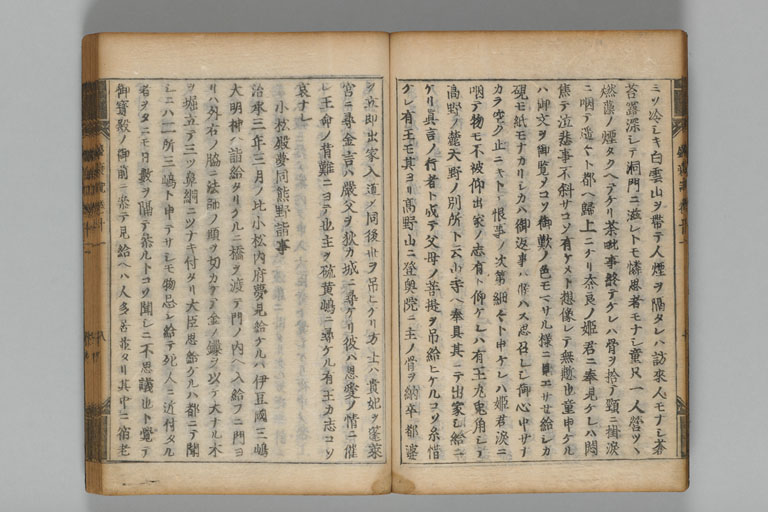 ミツ冷シキ白雲山ヲ帯テ人煙ヲ隔タレハ訪来人モナシ蒼
苔露深シテ洞門ニ滋レトモ憐思者モナシ童只一人営ツヽ
燃藻ノ煙タクヘテケリ茶毗事終テケレハ骨ヲ拾テ頸ニ掛涙
ニ咽テ遥々ト都ヘ帰上ニケリ奈良ノ姫君ニ奉見ケレハ悶
焦テ泣悲事不斜サコソ有ケメト想像レテ無慙也童申ケル
ハ御文ヲ御覧メコソ御歎ノ色モマサル様ニ見エサセ給シカ
硯モ紙モナカリシカハ御返事ハ候ハス思召レシ御心中サナ
カラ空ク止ニキト恨事ノ次第細々ト申ケレハ姫君涙ニ
咽テ物モ不被仰出家ノ志有ト仰ケレハ有王丸兎角シテ
高野ノ麓天野ノ別所ト云山寺ヘ奉具其ニテ出家シ給ニ
ケリ真言ノ行者ト成テ父母ノ菩提ヲ吊給ヒケルコソ糸惜
ケレ有王モ其ヨリ高野山ニ登奥院ニ主ノ骨ヲ納卒都婆
ヲ立即出家入道ノ同後世ヲ吊ヒケリ方士ハ貴妃ヲ蓬莱
宮ニ尋金言ハ厳父ヲ狄カ城ニ尋ケリ彼ハ恩愛ノ情ニ催
レ王命ノ背難ニヨテ也主ヲ硫黄嶋ニ尋ケル有王カ志コソ
哀ナレ
小松殿夢同熊野詣事
治承三年三月ノ比小松内府夢見給ケルハ伊豆国三嶋
大明神ヘ詣給タリケルニ橋ヲ渡テ門ノ内ヘ入給フニ門ヨ
リハ外右ノ脇ニ法師ノ頭ヲ切カケテ金ノ鏁ヲ以テ大ナル木
ヲ堀立テ三ツ鼻綱ニツナキ付タリ大臣思給ケルハ都ニテ聞
シニハ二所三嶋ト申テサシモ物忌シ給テ死人ニ近付タル
者ヲタニモ日数ヲ隔テ参ルトコソ聞シニ不思議也ト覚テ
御宝殿ノ御前ニ参テ見給ヘハ人多居並タリ其中ニ宿老